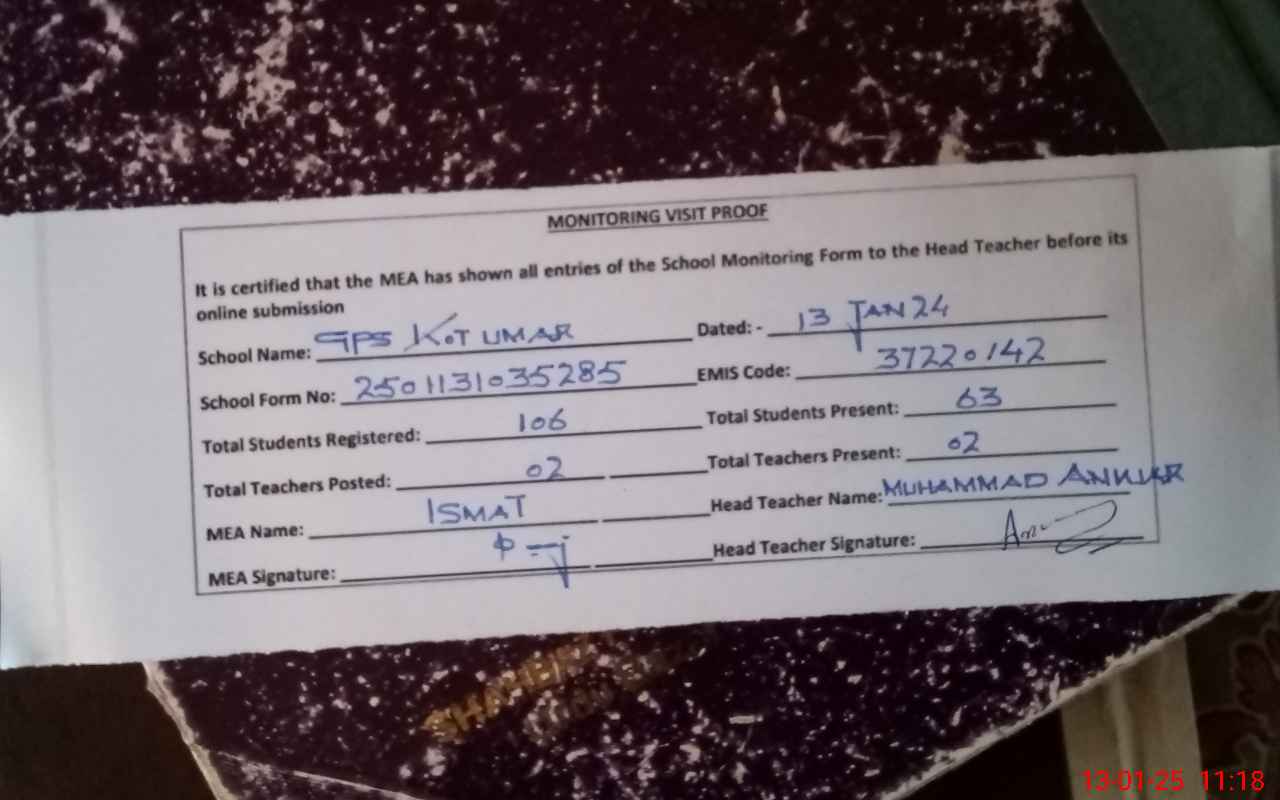 MONITORING VISIT PROOF
It is certified that the MEA has shown all entries of the School Monitoring Form to the Head Teacher before its
online submission
School Name: GPS KOT UMAR Dated: - 13 JAN 24
School Form No: 2501131035285 EMIS Code: 37220142
Total Students Registered: 106 Total Students Present: 63
Total Teachers Posted: 02 Total Teachers Present: 02
MEA Name: ISMAT Head Teacher Name: MUHAMMAD
MEA Signature: Head Teacher Signature:
13-01-25 11:18